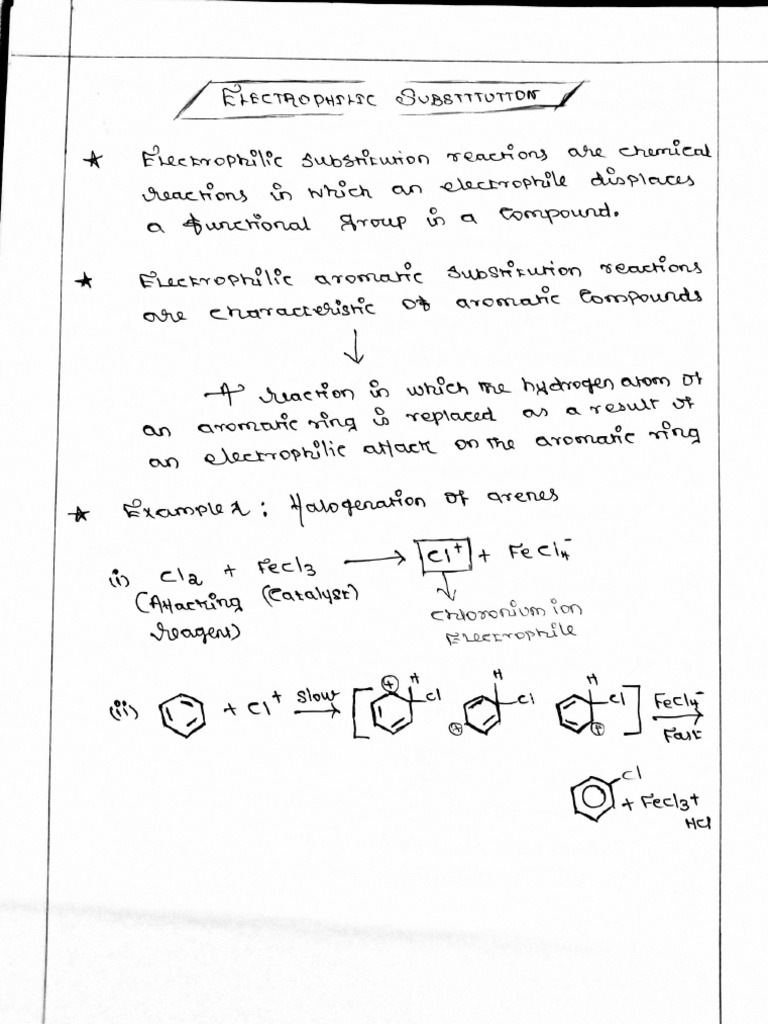 ELECTROPHILIC SUBSTITUTION
★ Electrophilic substitution reactions are chemical
reactions in which an electrophile displaces
a functional group in a compound.
★ Electrophilic aromatic substitution reactions
are characteristic of aromatic compounds
↓
A reaction in which the hydrogen atom of
an aromatic ring is replaced as a result of
an electrophilic attack on the aromatic ring
★ Example 1: Halogenation of arenes
(i) Cl2 + FeCl3 → Cl+ + FeCl4-
(Attacking (Catalyst)
reagent)
Chloronium ion
Electrophile
(ii) + Cl+ Slow → [ + H Cl + H Cl H Cl + ] FeCl4- → Fast
Cl
+ FeCl3 +
HCl